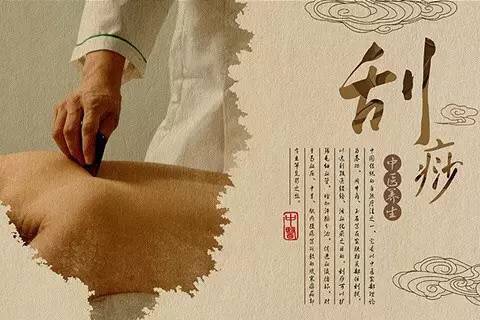 刮痧
中医养生
中国传统的自然疗法之一，它是以中医皮部理论
为基础，用牛角、玉石等在皮肤相关部位刮拭，
以达到疏通经络、活血化瘀之目的。刮痧可以扩
张毛细血管，增加汗腺分泌，促进血液循环，对
于高血压、中暑、肌肉酸疼等所致的风寒痹症都
有立竿见影之效。
中醫